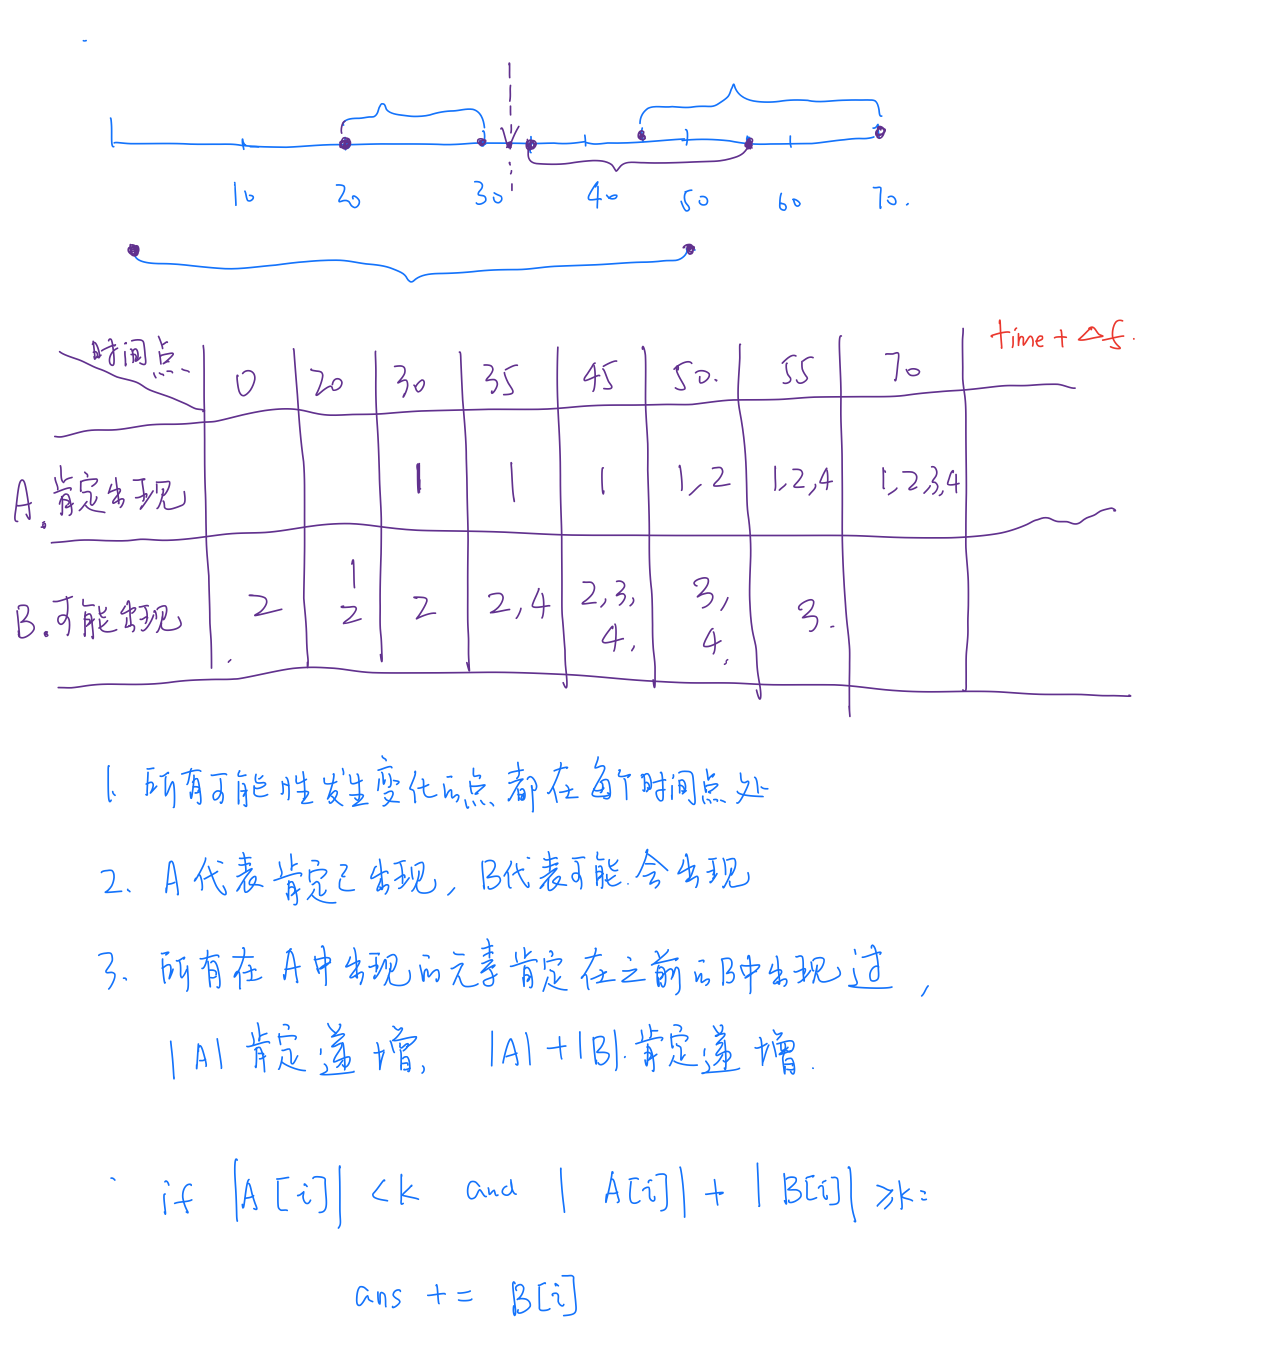 10 20 30 40 50 60 70.
时间点 0 20 30 35 45 50. 55 70 time + Δf.
A. 肯定出现 1 1 1 1, 2 1, 2, 4 1, 2, 3, 4
B. 可能出现 2 1 2 2 2, 4 2, 3, 4. 3, 4. 3.
1. 所有可能性发生变化的点都在每个时间点处
2. A代表肯定已出现, B代表可能会出现
3. 所有在A中出现的元素肯定在之前的B中出现过,
|A| 肯定递增, |A|+|B| 肯定递增.
if |A[i]| < k and |A[i]| + |B[i]| ≥ k:
ans += B[i]